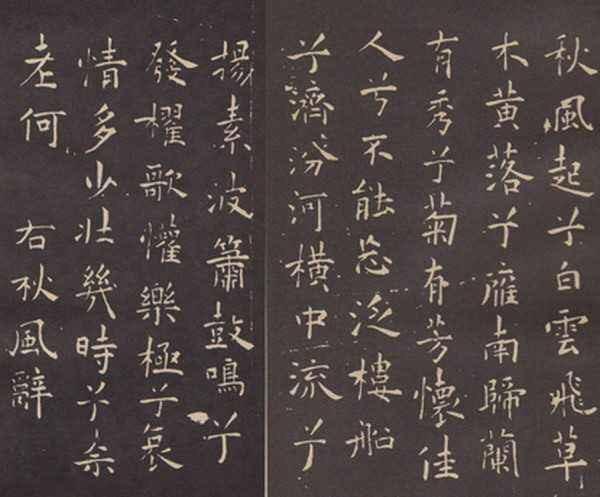 秋風起兮白雲飛草
木黃落兮雁南歸蘭
有秀兮菊有芳懷佳
人兮不能忘泛樓船
兮濟汾河橫中流兮
揚素波簫鼓鳴兮
發櫂歌懽樂極兮哀
情多少壯幾時兮奈
老何 右秋風辭